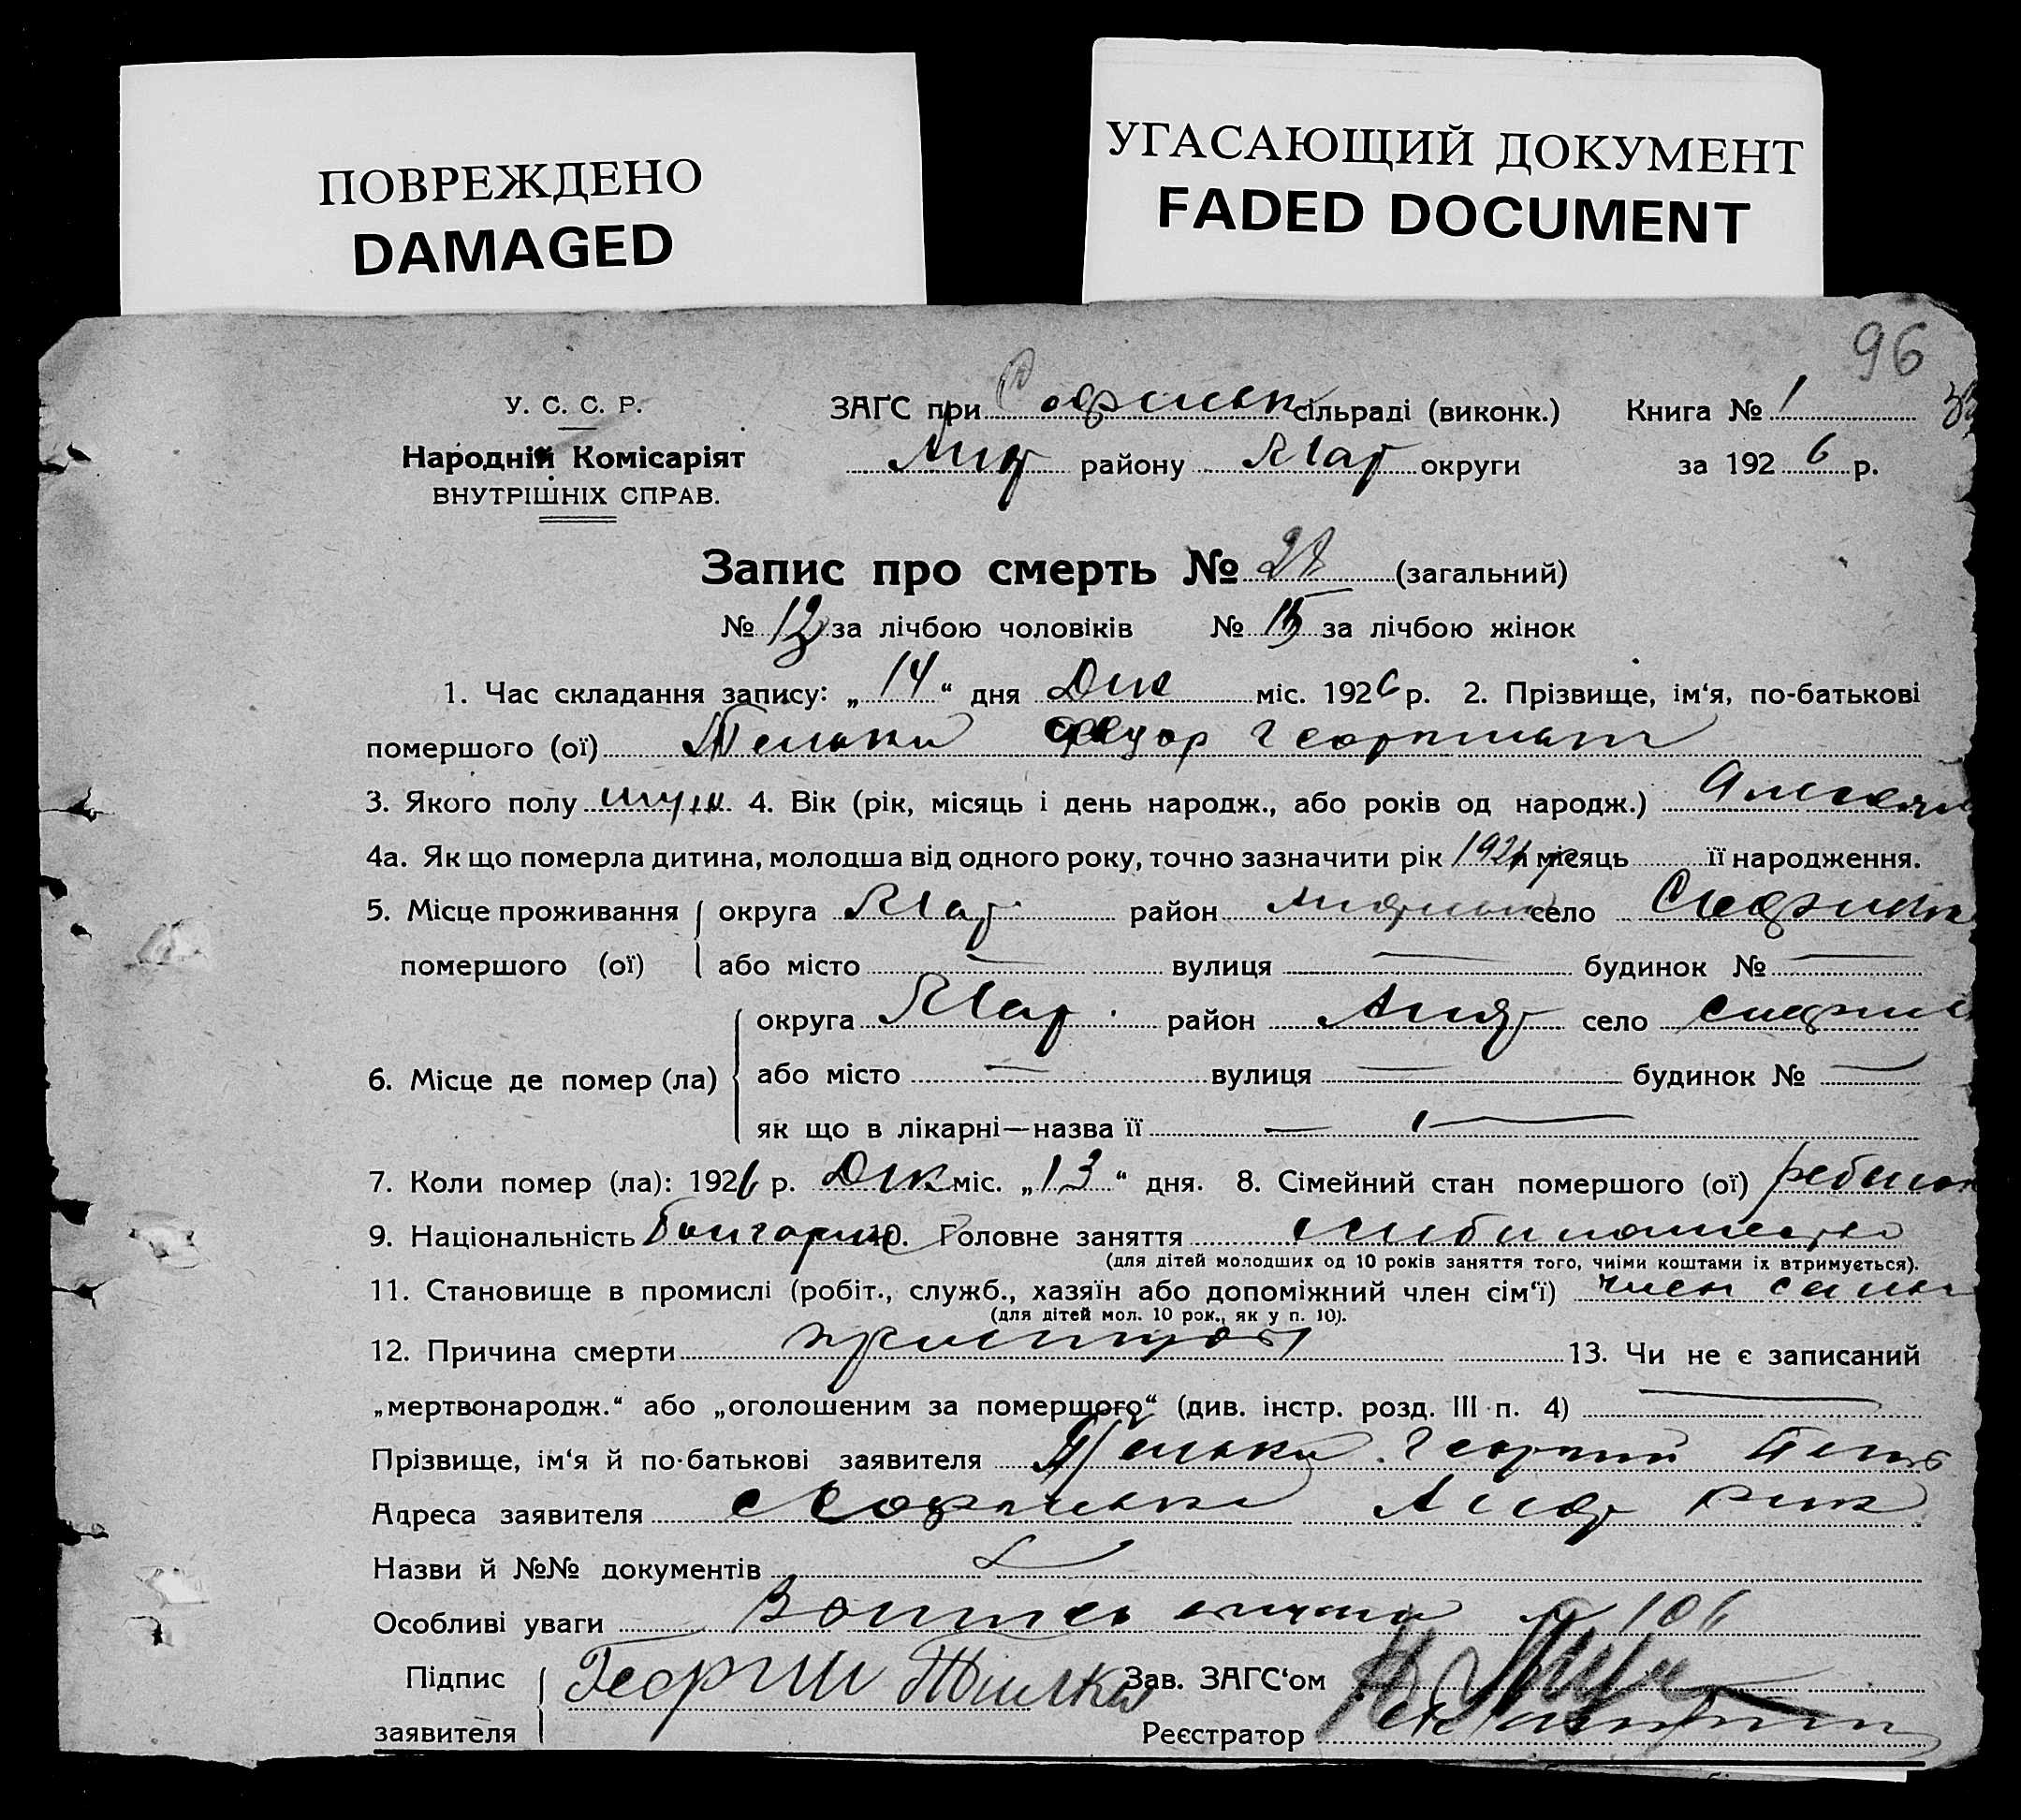 ПОВРЕЖДЕНО
DAMAGED
УГАСАЮЩИЙ ДОКУМЕНТ
FADED DOCUMENT
96
У. С. С. Р.
Народній Комісаріят
ВНУТРІШНІХ СПРАВ.
ЗАГС при Софиевк сільраді (виконк.) Книга № 1
району Мар округи за 1926 р.
Запис про смерть № 28 (загальний)
№ 13 за лічбою чоловіків № 15 за лічбою жінок
1. Час складання запису: „14“ дня Дек міс. 1926 р. 2. Прізвище, ім‘я, по-батькові
помершого (ої) Федор Георгиевич
3. Якого полу муж 4. Вік (рік, місяць і день народж., або років од народж.) 9 месяц
4а. Як що померла дитина, молодша від одного року, точно зазначити рік 1926 місяць її народження.
5. Місце проживання округа Мар район село Софиевк
помершого (ої) або місто — вулиця — будинок № —
округа Мар. район Андр село Софиев
6. Місце де помер (ла) або місто — вулиця — будинок № —
як що в лікарні—назва її —
7. Коли помер (ла): 1926 р. Дек міс. „13“ дня. 8. Сімейний стан помершого (ої) ребенок
9. Національність Болгарин 10. Головне заняття хлебопашество
(для дітей молодших од 10 років заняття того, чиїми коштами їх втримується).
11. Становище в промислі (робіт., служб., хазяїн або допоміжний член сім‘ї) член семьи
(для дітей мол. 10 рок., як у п. 10).
12. Причина смерти 13. Чи не є записаний
„мертвонародж.“ або „оголошеним за помершого“ (див. інстр. розд. III п. 4) —
Прізвище, ім‘я й по-батькові заявителя Георгий
Адреса заявителя Софиевка Андр
Назви й №№ документів
Особливі уваги 106
Підпис Георгий Зав. ЗАГС‘ом
заявителя Реєстратор